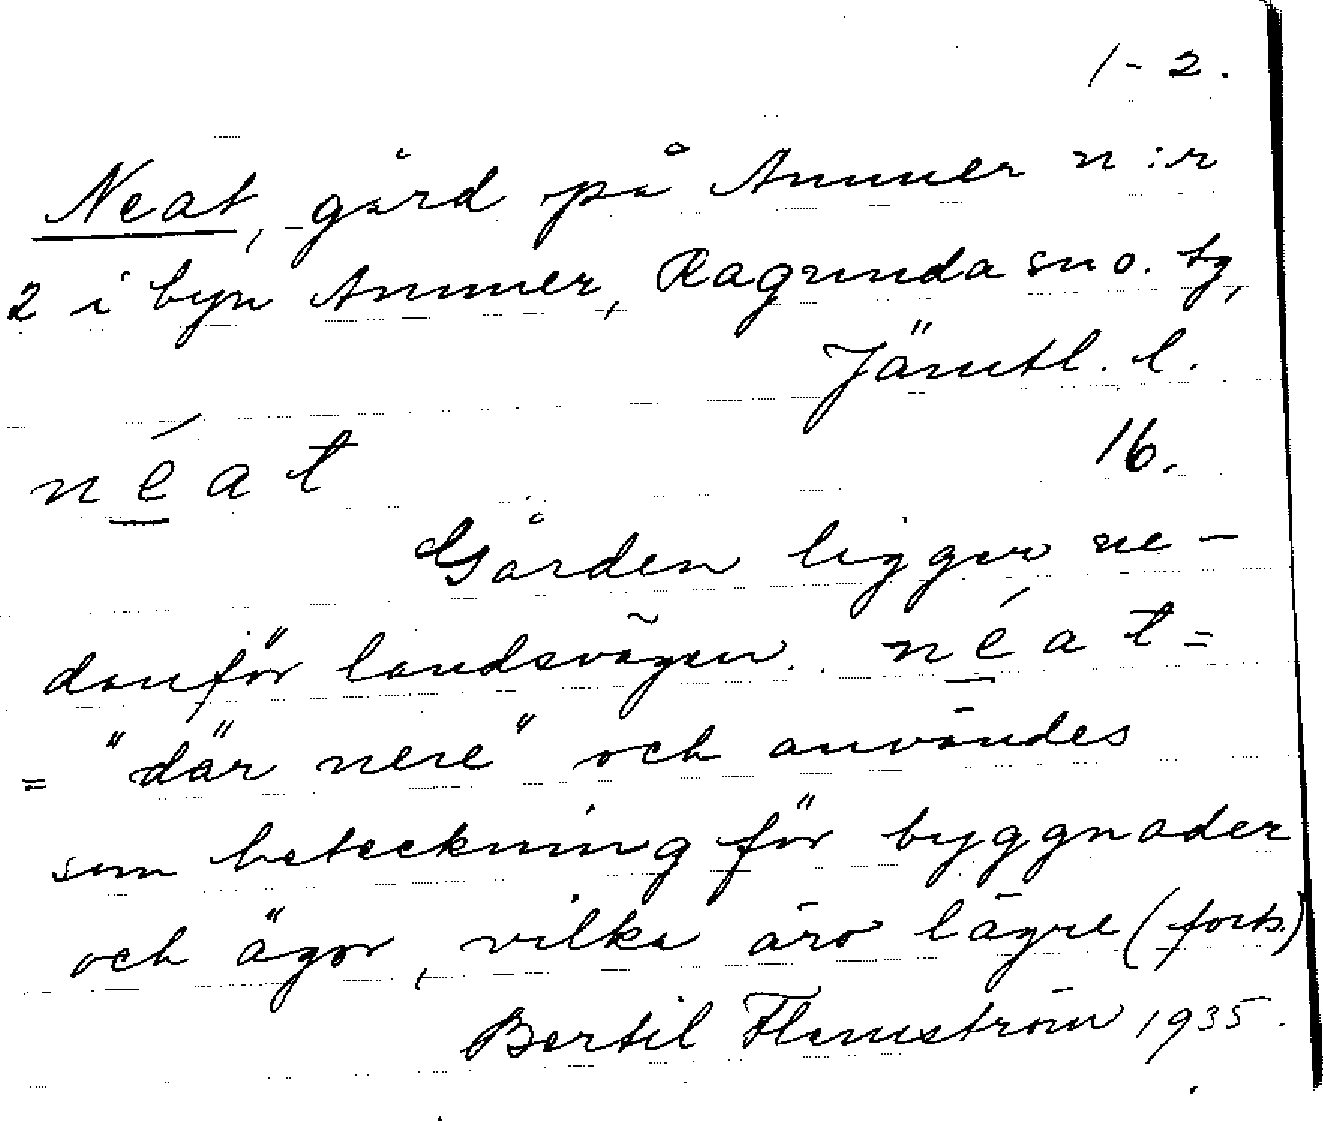 1-2.
Neat, gård på Ammer n:r
2 i byn Ammer, Ragunda sn o. tg,
Jämtl. l.
néat 16.
Gården ligger ne-
danför landsvägen. néat =
= "där nere" och användes
som beteckning för byggnader
och ägor, vilka äro lägre (forts.)
Bertil Flemström 1935.